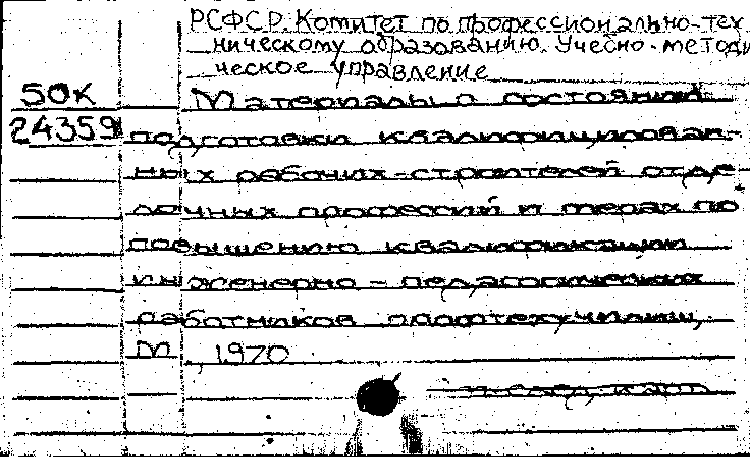 РСФСР. Комитет по профессионально-тех
ническому образованию. Учебно-методи
ческое управление
50К
Материалы о состоянии
24359
подготовки квалифицирован-
ных рабочих-строителей отде
лочных профессий и мерах по
повышению квалификации
инженерно-педагогических
работников профтехучилищ,
М, 1970
см. след. карт